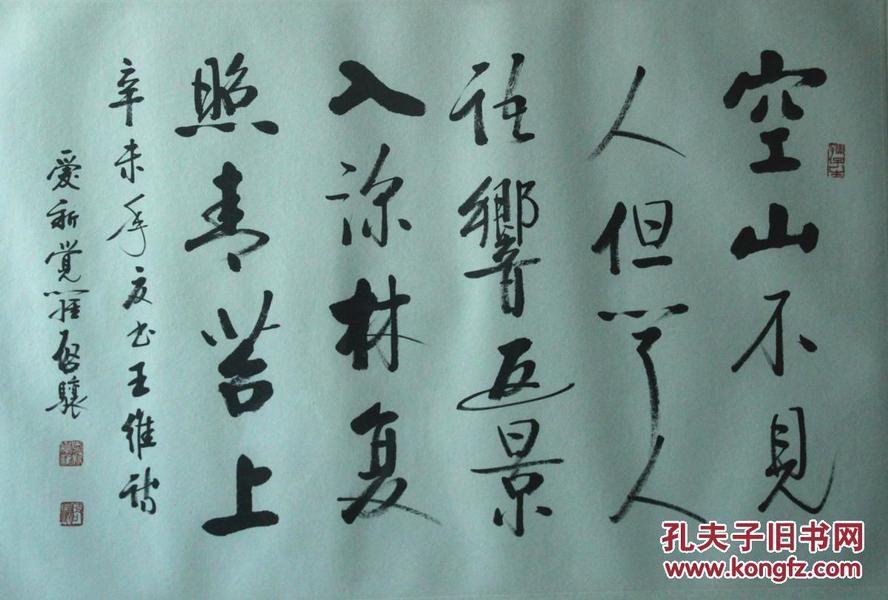 空山不見
人但聞人
語響返景
入深林復
照青苔上
辛未年夏书王維詩
愛新覺羅啟驤
孔夫子旧书网
www.kongfz.com